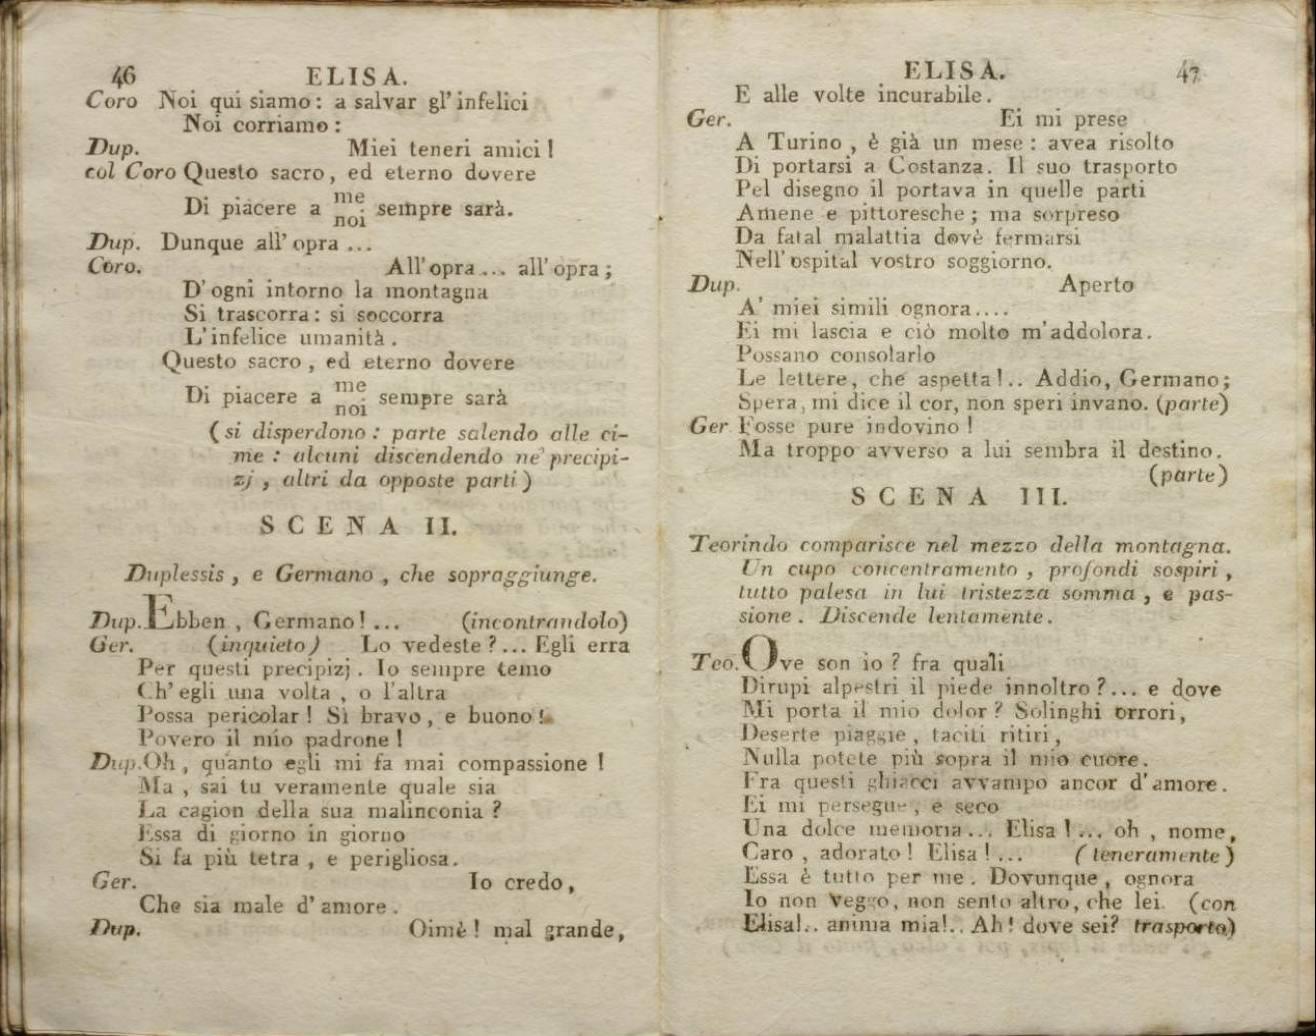 46 ELISA.
Coro Noi qui siamo: a salvar gl' infelici
Noi corriamo:
Dup. Miei teneri amici!
col Coro Questo sacro, ed eterno dovere
Di piacere a me noi sempre sarà.
Dup. Dunque all' opra ...
Coro. All' opra ... all' opra;
D' ogni intorno la montagna
Si trascorra: si soccorra
L' infelice umanità.
Questo sacro, ed eterno dovere
Di piacere a me noi sempre sarà
(si disperdono: parte salendo alle ci-
me: alcuni discendendo ne' precipi-
zj, altri da opposte parti)
SCENA II.
Duplessis, e Germano, che sopraggiunge.
Dup. Ebben, Germano! ... (incontrandolo)
Ger. (inquieto) Lo vedeste? ... Egli erra
Per questi precipizj. Io sempre temo
Ch' egli una volta, o l'altra
Possa pericolar! Sì bravo, e buono!
Povero il mio padrone!
Dup. Oh, quanto egli mi fa mai compassione!
Ma, sai tu veramente quale sia
La cagion della sua malinconia?
Essa di giorno in giorno
Si fa più tetra, e perigliosa.
Ger. Io credo,
Che sia male d' amore.
Dup. Oimè! mal grande,
ELISA. 47
E alle volte incurabile.
Ger. Ei mi prese
A Turino, è già un mese: avea risolto
Di portarsi a Costanza. Il suo trasporto
Pel disegno il portava in quelle parti
Amene e pittoresche; ma sorpreso
Da fatal malattia dovè fermarsi
Nell' ospital vostro soggiorno.
Dup. Aperto
A' miei simili ognora....
Ei mi lascia e ciò molto m' addolora.
Possano consolarlo
Le lettere, che aspetta!.. Addio, Germano;
Spera, mi dice il cor, non speri invano. (parte)
Ger Fosse pure indovino!
Ma troppo avverso a lui sembra il destino.
(parte)
SCENA III.
Teorindo comparisce nel mezzo della montagna.
Un cupo concentramento, profondi sospiri,
tutto palesa in lui tristezza somma, e pas-
sione. Discende lentamente.
Teo. Ove son io? fra quali
Dirupi alpestri il piede innoltro?... e dove
Mi porta il mio dolor? Solinghi orrori,
Deserte piaggie, taciti ritiri,
Nulla potete più sopra il mio cuore.
Fra questi ghiacci avvampo ancor d' amore.
Ei mi persegue, e seco
Una dolce memoria... Elisa!... oh, nome,
Caro, adorato! Elisa!... (teneramente)
Essa è tutto per me. Dovunque, ognora
Io non veggo, non sento altro, che lei. (con
Elisa!.. anima mia!.. Ah! dove sei? trasporto)